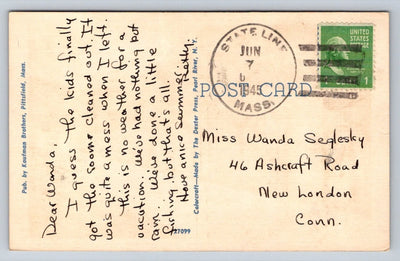 Pub. by Kaufman Brothers, Pittsfield, Mass.
Dear Wanda,
I guess the kids finally
got the rooms cleaned out. It
was quite a mess when I left.
this is no weather for a
vacation. We've had nothing but
rain. We've done a little
fishing but that's all.
Have a nice summer
27099
Colorcraft—Made by The Dexter Press, Pearl River, N. Y.
STATE LINE
JUN
7
1945
MASS.
UNITED
STATES
1
POST CARD
Miss Wanda Seglesky
46 Ashcraft Road
New London
Conn.